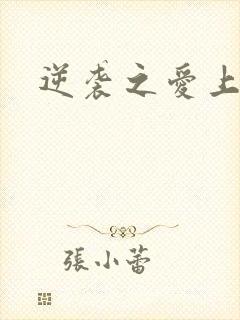 逆袭之愛上
張小蕾